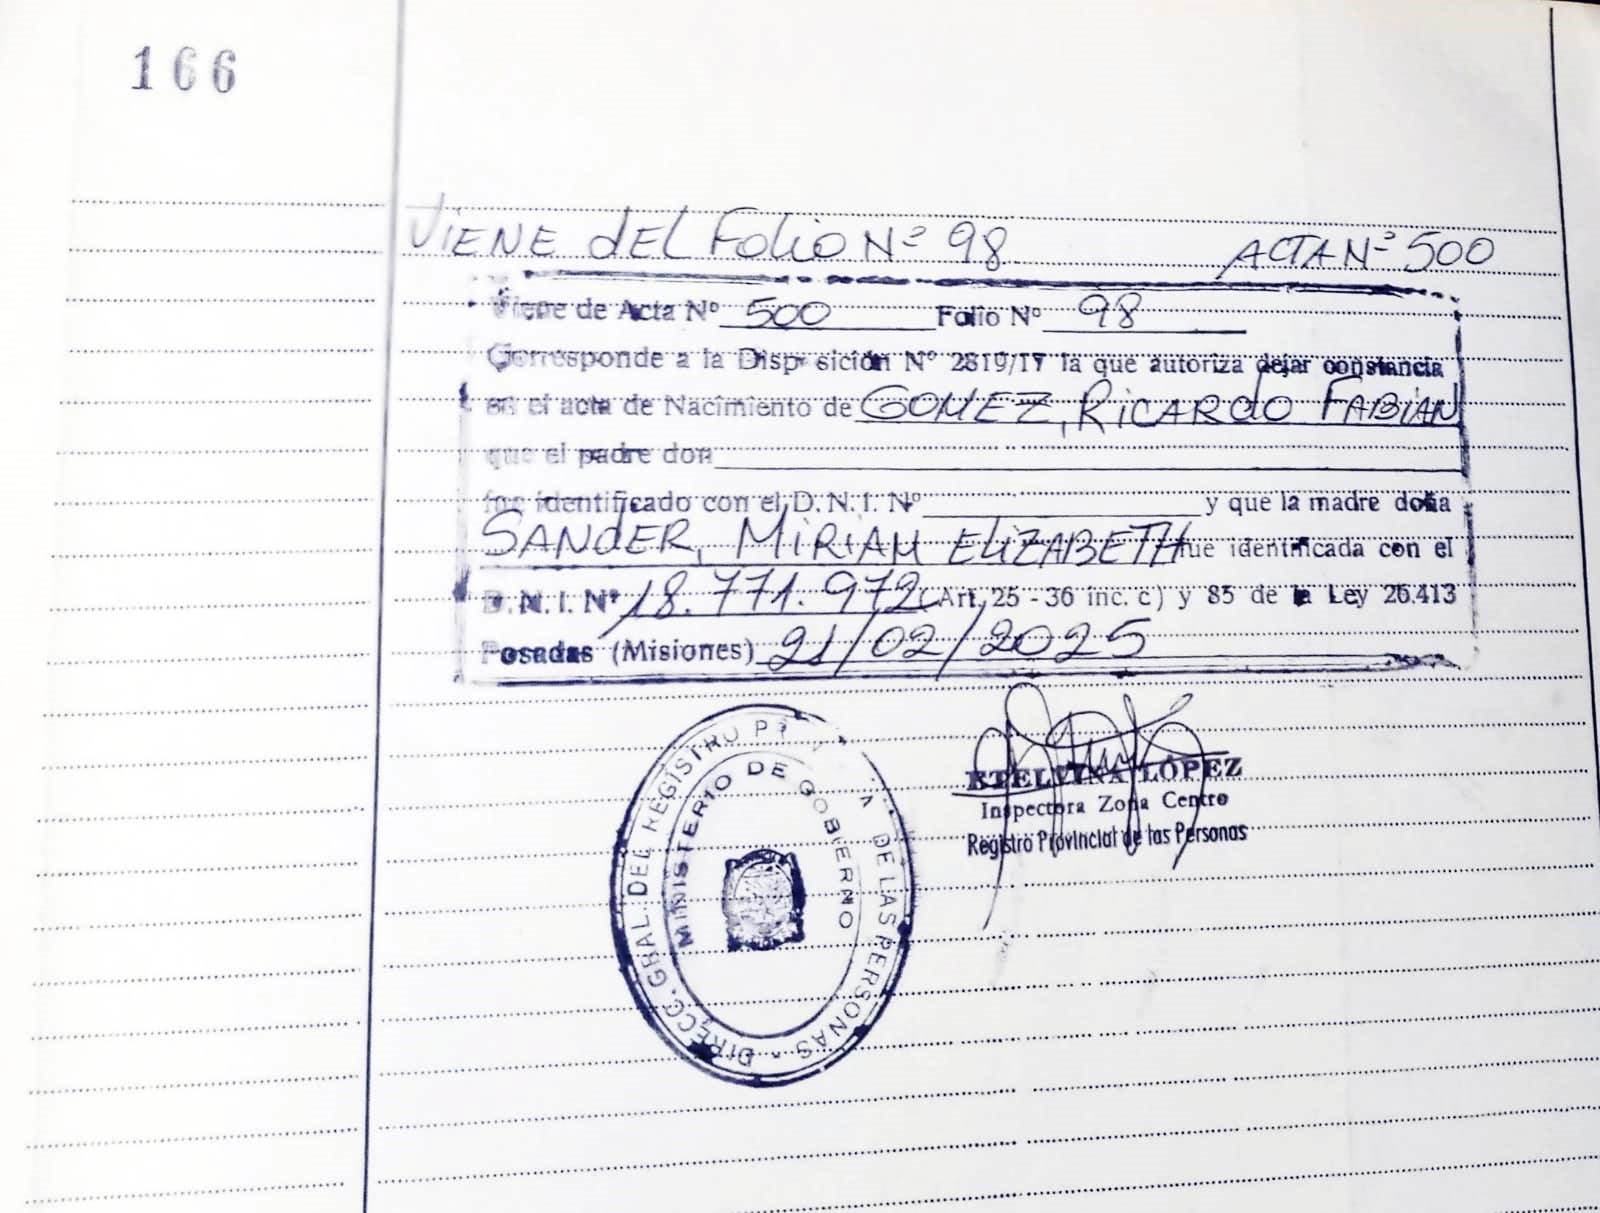 166
VIENE dEL FoLio Nº 98 ACTA Nº 500
Viene de Acta Nº 500 Folio Nº 98
Corresponde a la Disposición Nº 2819/17 la que autoriza dejar constancia
en el acta de Nacimiento de GOMEZ, RICARdO FABIAN
que el padre don
fue identificado con el D.N.I. Nº y que la madre doña
SANdER, MiRIAM ELiZABETH fue identificada con el
D.N.I. Nº 18.771.972 (Art. 25 - 36 inc. c) y 85 de la Ley 26.413
Posadas (Misiones) 21/02/2025
DIRECC. GRAL. DEL REGISTRO DE LAS PERSONAS
MINISTERIO DE GOBIERNO
ETELVINA LÓPEZ
Inspectora Zona Centro
Registro Provincial de las Personas